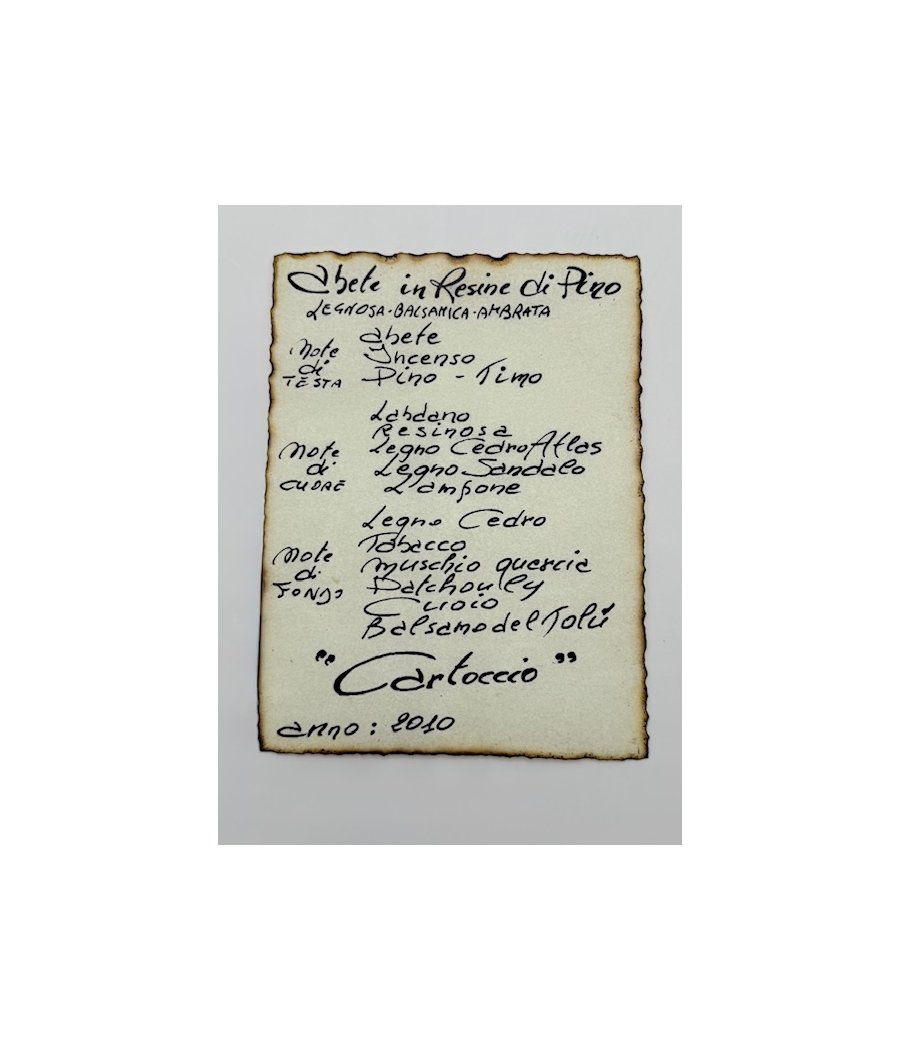 Abete in Resine di Pino
LEGNOSA-BALSAMICA-AMBRATA
Note di TESTA
Abete
Incenso
Pino - Timo
Note di CUORE
Labdano
Resinosa
Legno Cedro Atlas
Legno Sandalo
Lampone
Note di FONDO
Legno Cedro
Tabacco
Muschio quercia
Patchouly
Cuoio
Balsamo del Tolù
"Cartoccio"
anno: 2010